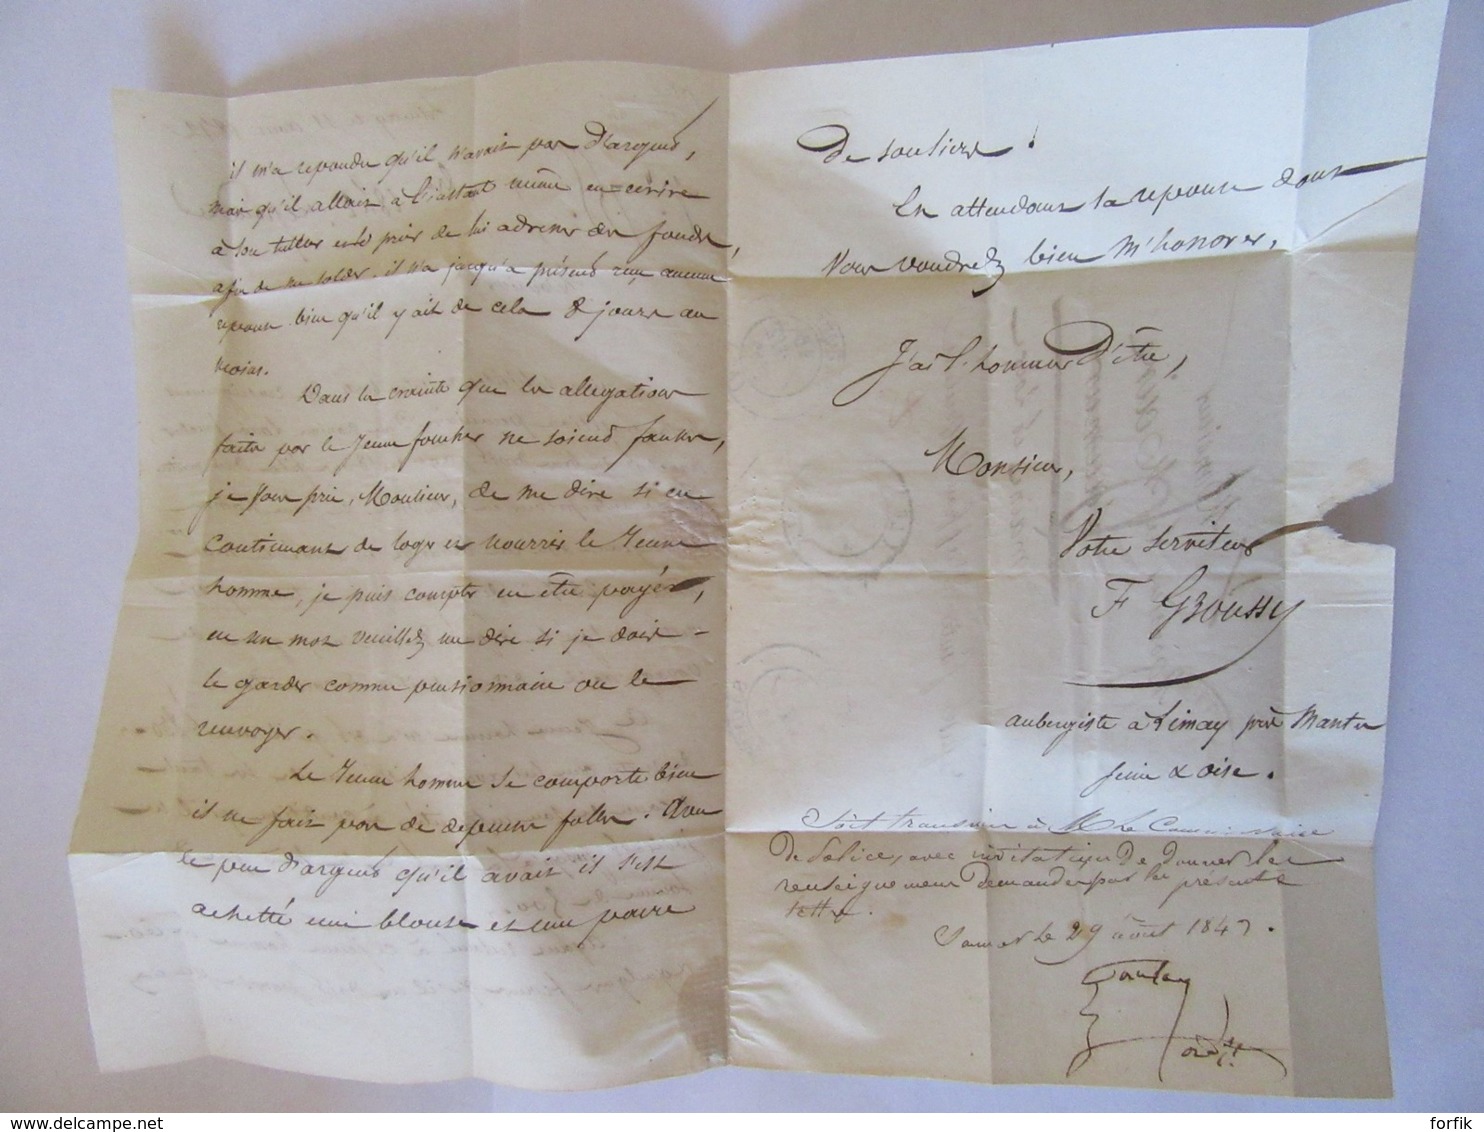 il m'a repondu qu'il n'avait pas d'argend,
mais qu'il allait à l'instant même en ecrire
à son tutteur et le prier de lui adresser des fonds,
afin de me solder. il n'a jusqu'a présend reçu aucune
reponse bien qu'il y ait de cela 8 jours au
moins.
Dans la crainte que les allegations
faites par le Jeune foucher ne soiend fausses,
je vous prie, Monsieur, de me dire si en
continuant de loger et nourrir le Jeune
homme, je puis compter en être payér,
en un mot veuillez me dire si je dois
le garder comme pensionnaire ou le
renvoyer.
Le Jeune homme se comporte bien
il ne fait pas de depenses folles. Avec
le peu d'argend qu'il avait il s'est
achetté une blouse et une paire
de souliers.
En attendant la reponse dont
vous voudrez bien m'honorer,
J'ai l'honneur D'être,
Monsieur,
Votre serviteur
F Groussy
aubergiste à Limay près Mantes
seine & oise.
Soit transmis à M. le Commissaire
De Police, avec invitation de donner les
renseignemens demandés par la présente
lettre.
le 29 août 1847.
forfik